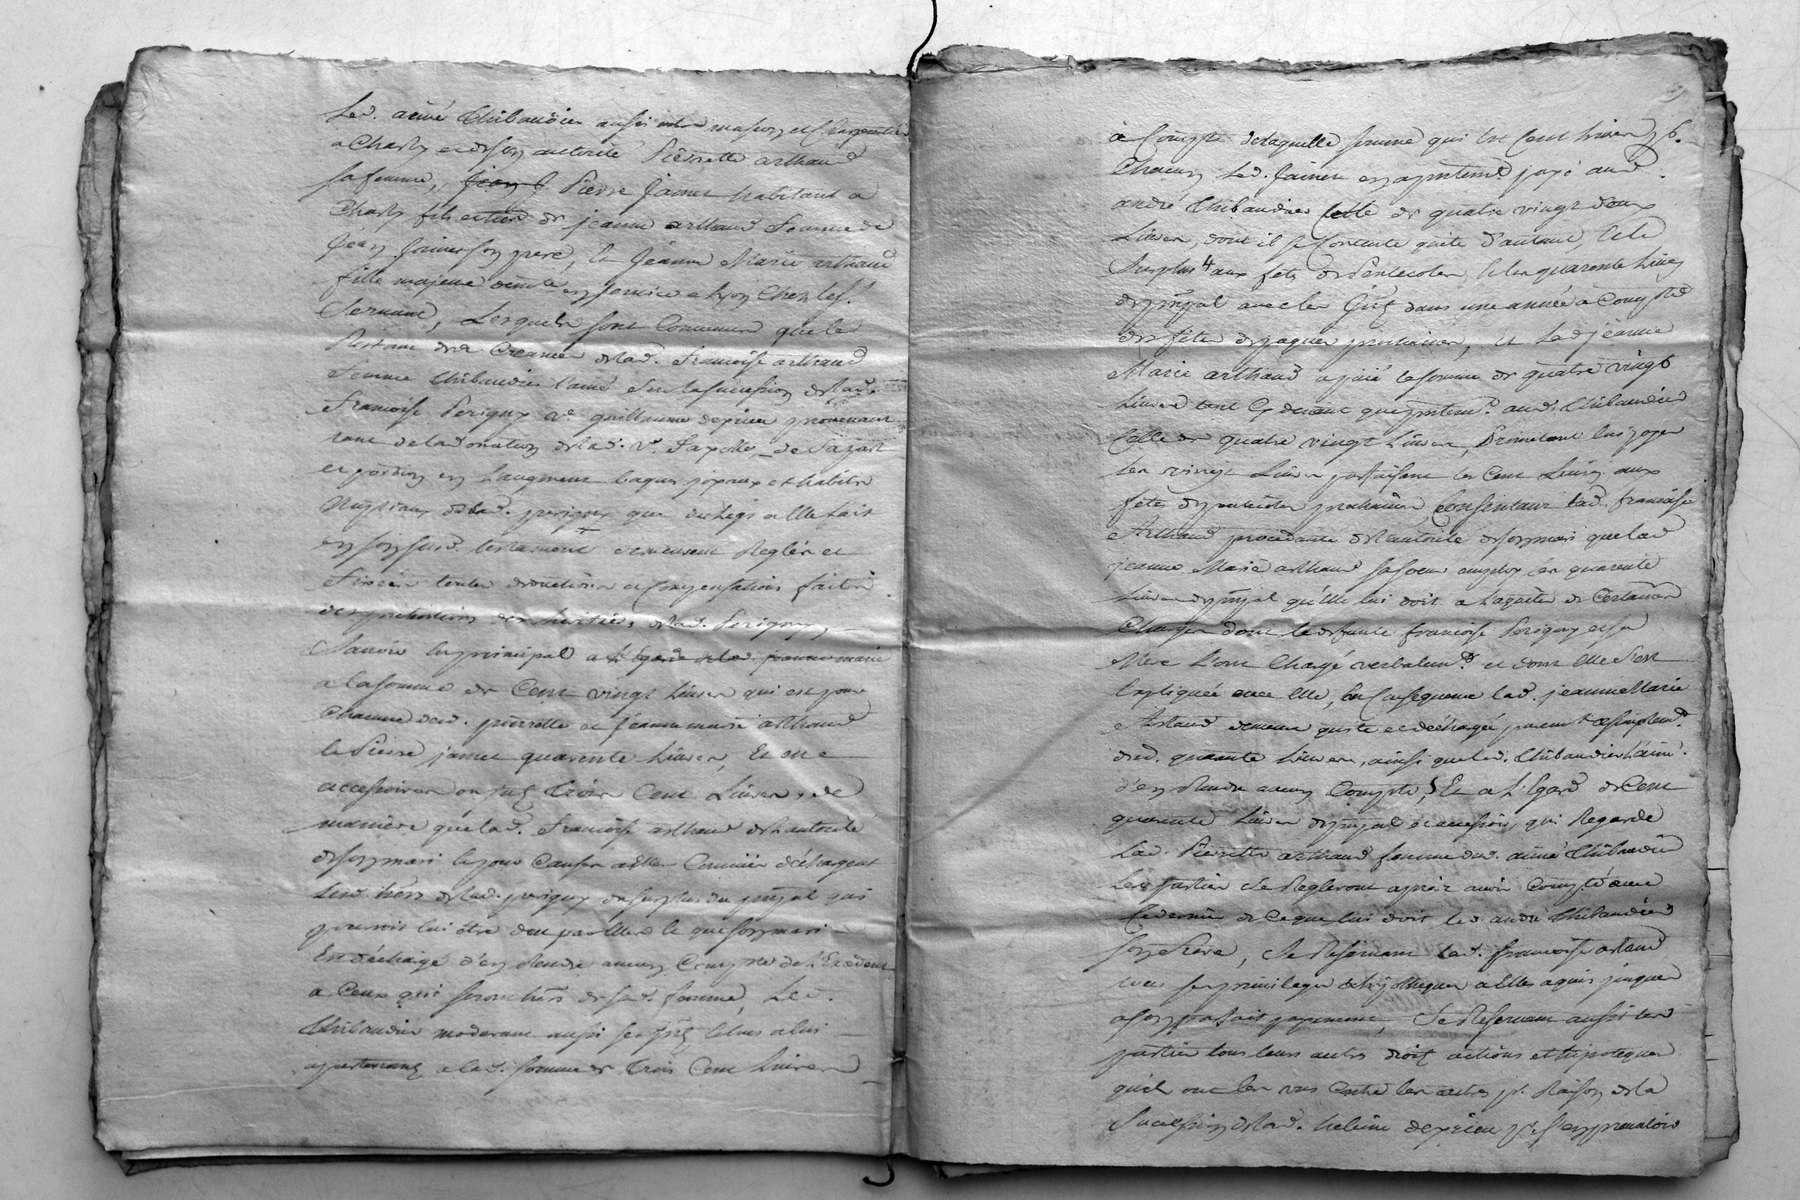 Led. aimé Thibaudier aussi mtre masson et Charpentier
a Charly et de son autorité Pierrette arthaud
sa femme, Pierre Jamet habitant a
Charly fils et de jeanne arthaud femme de
Jean Jamet son pere, Et Jéanne Marie arthaud
fille majeure demte en service a Lyon Chez les f.
Servant, Lesquels sont Convenus que le
Restant des Creances de lad. francoise arthaud
femme Thibaudier l'ainé sur la succession de lad.
francoise Perigny ve guillaume deprieu provenant
tant de la donation de lad. ve
et portion en Laugment bagues joyaux et habits
Nuptiaux de lad. perigny que du legs a Elle fait
en son susd. testament demeurent Reglés et
fixées toutes deductions et Compensations faites
des pretentions des heritiers de lad. Perigny,
Savoir En principal a l'Egard de lad. jeanne marie
a la somme de Cent vingt Livres qui est pour
Chacune desd. pierrette et Jeanne marie arthaud
et Pierre jamet quarente Livres, Et en
accessoires ou jnts trois Cent Livres, de
maniere que lad. francoise arthaud de l'autorité
de son mari
Lesd. hers de lad. perigny du surplus du prnpal qui
pourroit lui être deu par Elles Et que son mari
Est déchargé d'en Rendre aucun Compte de l'Exedent
a Ceux qui seront hers de sad. femme, Led.
Thibaudier moderant aussi ses jnts
apartenants a lad. somme de trois Cent Livres
à Compte de laquelle somme qui Est Cent Livres pr.
Chacun Led. Jamet en a presentemt payé aud.
andré Thibaudier Celle de quatre vingt deux
Livres, dont il se Contente quite d'autant, Et le
surplus aux fetes de Pentecotes, Et les quarente Livres
de prnpal avec les jnts dans une année a Compter
des fetes de paques prochaines, Et Lad. jéanne
Marie arthaud a païé la somme de quatre vingt
Livres tant Cy devant que presentemt. aud. Thibaudier
Celle de quatre vingt Livres, Promettant lui payer
les vingt Livres parfaisant les Cent Livres aux
fetes de pentecotes prochaines, Consentant lad. francoise
Arthaud procedante de l'autorité de son mari que lad.
jeanne Marie arthaud sa soeur employe les quarente
Livres de prnpal qu'Elle lui doit a Laquitter de Certaines
Charges dont la defunte francoise Perigny et sa
Mere L'ont Chargé verbalemt. et dont Elle s'est
Expliquée avec Elle, En Consequence lad. jeanne Marie
Artaud demeure quite et déchargée purement et simplemt.
desd. quarante Livres, ainsi que led. Thibaudier L'ainé
d'en Rendre aucun Compte, Et a L'Egard de Cent
quarente Livres de prnpal et accessoires qui Regarde
Lad. Pierrette arthaud femme dud. aimé Thibaudier
Les parties se Regleront après avoir Compté avec
Ce dernier de Ce que lui doit led. andré Thibaudier
son frere, Se Reservant Lad. francoise artaud
tous ses privileges et hypotheques a Elles aquis jusques
a son parfait payement, Se Reservant aussi les
parties tous leurs autres droits actions et hipoteques
qu'ils ont les uns Contre les autres pr. Raison de la
Succession de lad. heleine deprieu